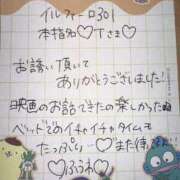 イルファーロ301
本指名♡Tさま♡
お誘い頂いて
ありがとうございました!
映画のお話できたの楽しかったね
ベッドでのイチャイチャタイムも
たっぷり…また待ってます
♡ふうわ♡